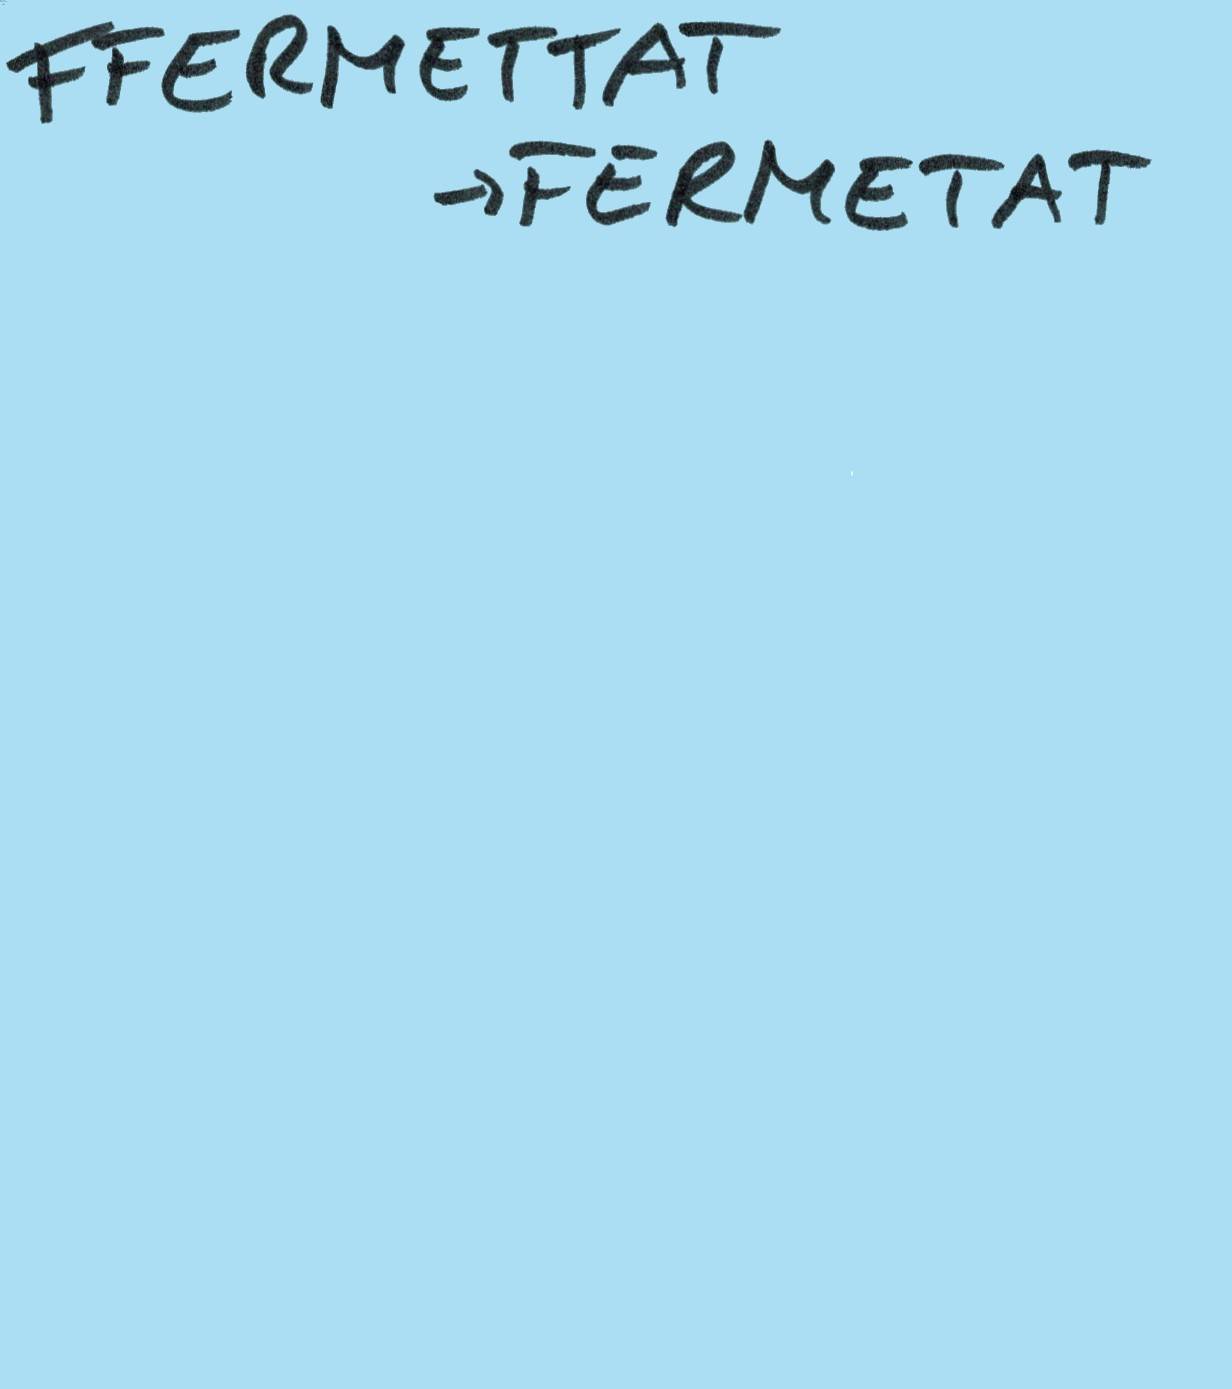 FFERMETTAT
→FERMETAT